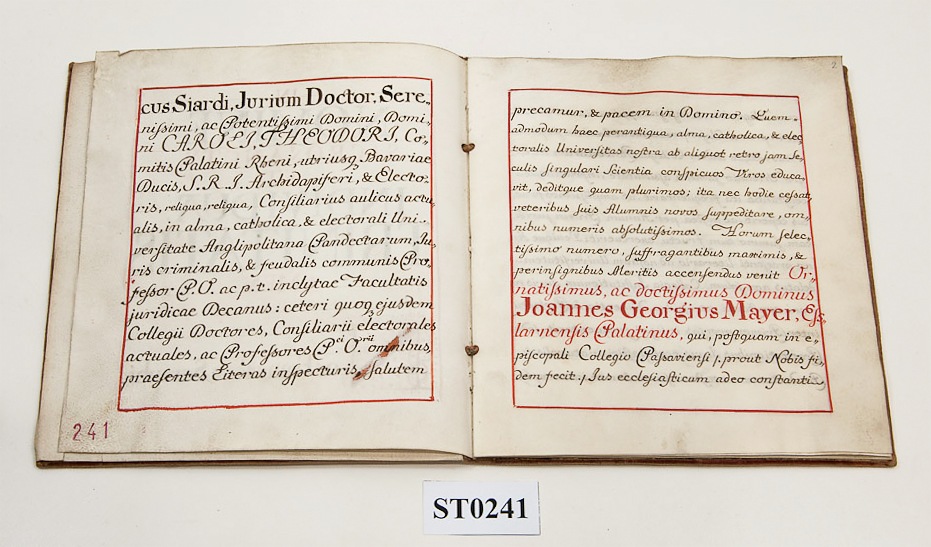 cus Siardi, Jurium Doctor, Sere-
nissimi, ac Potentissimi Domini, Domi-
ni CAROLI, THEODORI, Co-
mitis Palatini Rheni, utriusq. Bavariae
Ducis, S. R. I. Archidapiferi, & Electo-
ris, reliqua, reliqua, Consiliarius aulicus actu
alis, in alma, catholica, & electorali Uni-
versitate Anglipolitana Pandectarum, Ju-
ris criminalis, & feudalis communis Pro-
fessor P. O. ac p. t. inclytae Facultatis
juridicae Decanus: ceteri quoq ejusdem
Collegii Doctores, Consiliarii electorales
actuales, ac Professores P.ei O.rii omnibus,
praesentes Literas inspecturis, salutem
241
2
precamur, & pacem in Domino. Quem-
admodum haec perantiqua, alma, catholica, & elec-
toralis Universitas nostra ab aliquot retro jam se-
culis singulari Scientia conspicuos Viros educa-
vit, deditque quam plurimos; ita nec hodie cessat,
veteribus suis Alumnis novos suppeditare, om-
nibus numeris absolutissimos. Horum selec-
tissimo numero, suffragantibus maximis, &
perinsignibus Meritis accensendus venit Or-
natissimus, ac doctissimus Dominus
Joannes Georgius Mayer, Es-
larnensis Palatinus, qui, postquam in e-
piscopali Collegio Passaviensi /, prout Nobis fi-
dem fecit, / Jus ecclesiasticum adeo constanti-
ST0241